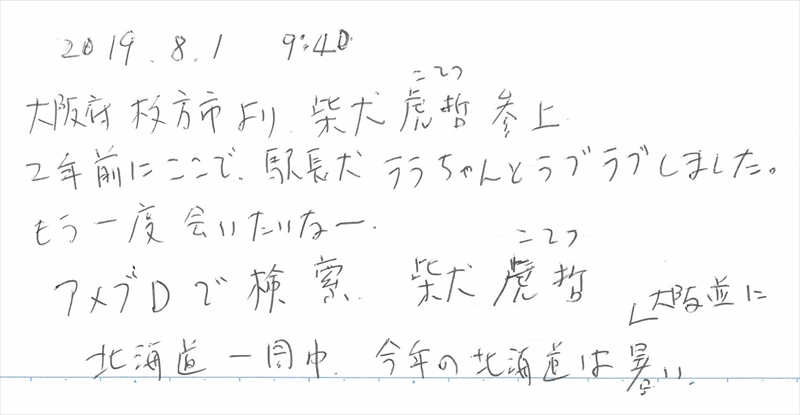 2019.8.1 9:40
こてつ
大阪府枚方市より、柴犬 虎哲 参上
2年前にここで、駅長犬 ララちゃんとラブラブしました。
もう一度 会いたいなー.
こてつ
アメブロで検索. 柴犬 虎哲
大阪並に
北海道一周中. 今年の北海道は暑い.